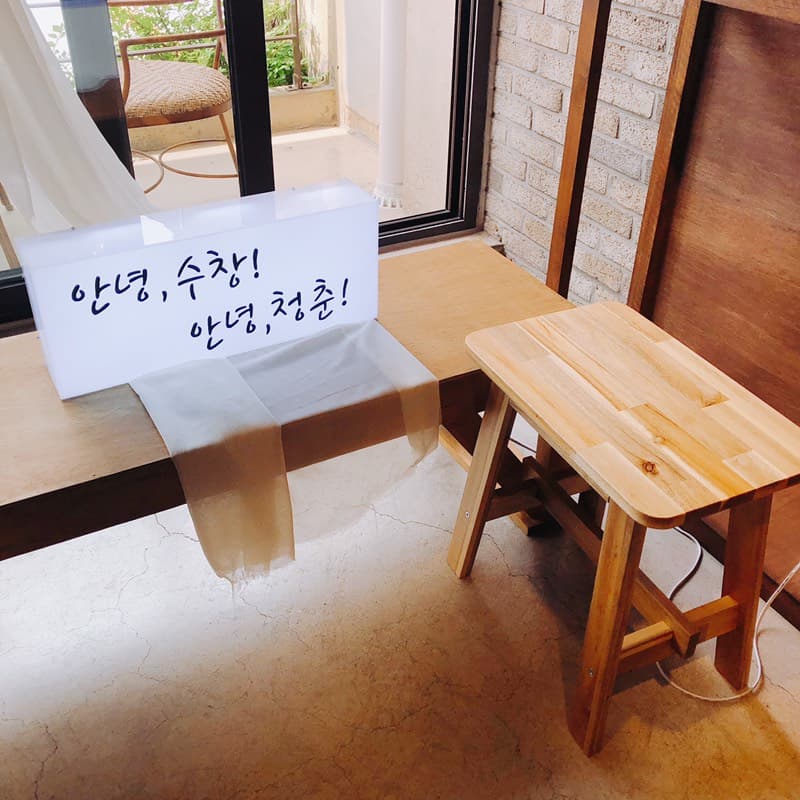 안녕, 수창!
안녕, 청춘!